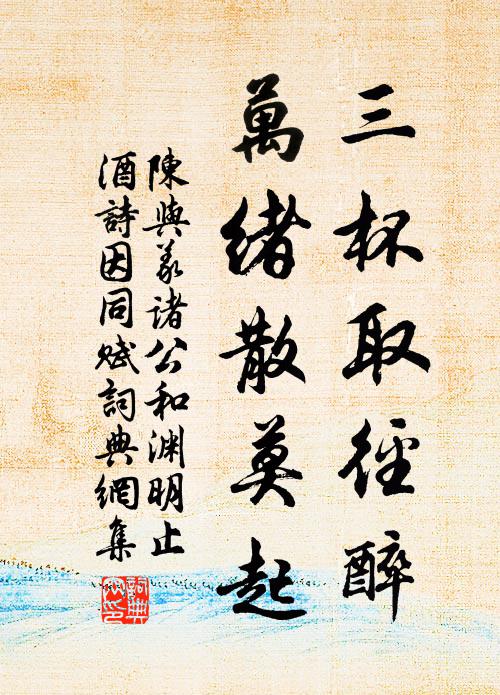 三杯取徑醉
萬緒散莫起
陳與義諸公和淵明止
酒詩因同賦詞典網集